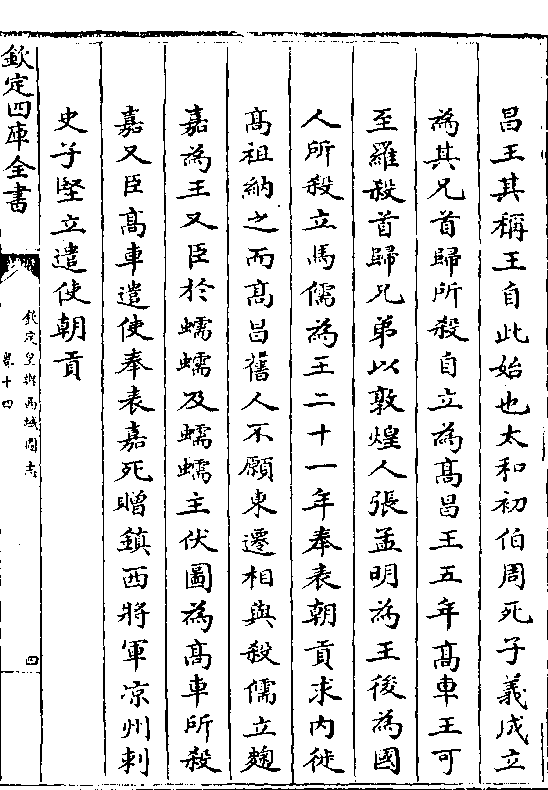 昌王其稱王自此始也太和初伯周死子義成立
為其兄首歸所殺自立為髙昌王五年髙車王可
至羅殺首歸兄弟以敦煌人張孟明為王後為國
人所殺立馬儒為王二十一年奉表朝貢求内徙
髙祖納之而髙昌舊人不願東遷相與殺儒立麴
嘉為王又臣於蠕蠕及蠕蠕主伏圖為髙車所殺
嘉又臣髙車遣使奉表嘉死贈鎮西將軍凉州刺
史子堅立遣使朝貢
欽定四庫全書
欽定皇輿西域圖志
卷十四
四